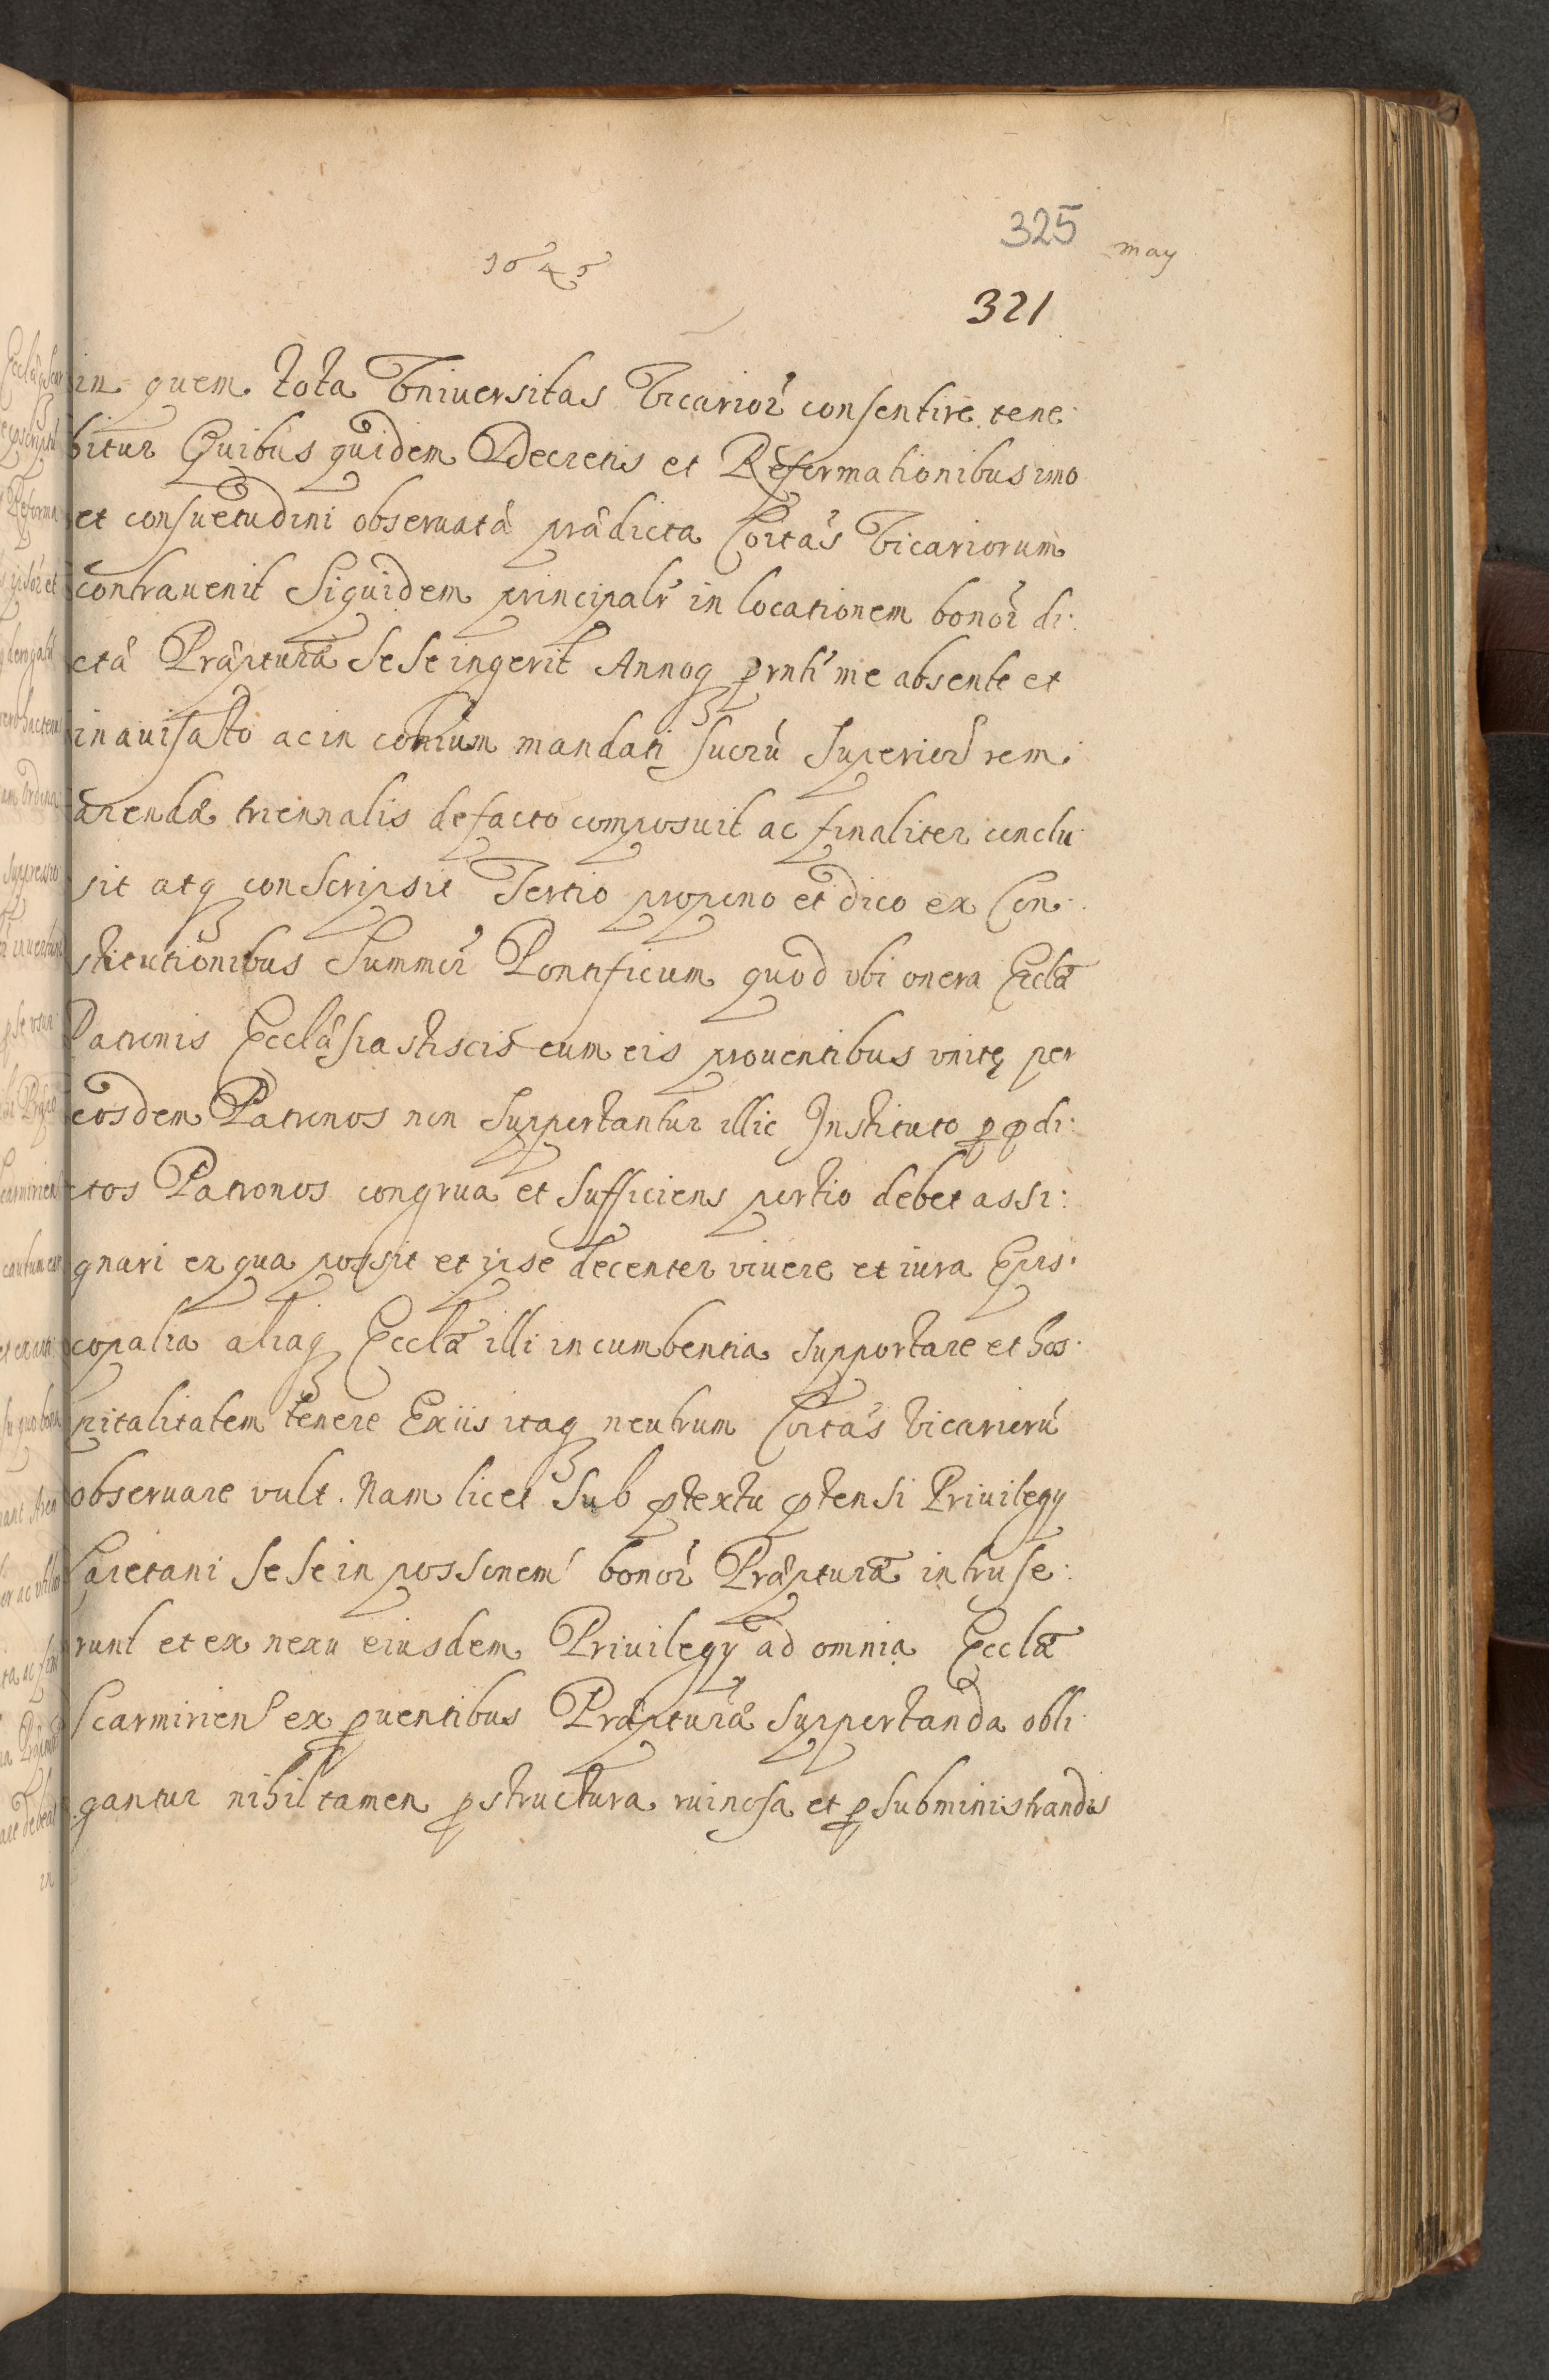 325 may
1645
321
in quem tota Vniuersitas Vicarior̃ consentire tene:
bitur Quibus quidem Decretis et Reformationibus imo
et consuetudini obseruatæ prædicta Coitas Vicariorum
contrauenit Siquidem principalr̃ in locationem bonor̃ di:
ctæ Præpturæ sese ingerit Annoq̃ prnti me absente et
inauisato ac in cotrium mandati suorũ Superior̃ rem
arendæ triennalis defacto composuit ac finaliter conclu:
sit atq̃ conscripsit Tertio propono et dico ex Con:
stitutionibus Summor̃ Pontificum quod vbi onera Ecclæ
Patronis Ecclæsiastiscis cum eis prouentibus vnitę per
eosdem Patronos non supportantur illic Instituto p p̃di:
ctos Patronos congrua et sufficiens portio debet assi:
gnari ex qua possit et ipse decenter viuere et iura Epis:
copalia aliaq̃ Ecclæ illi incumbentia supportare et hos:
pitalitatem tenere Exiis itaq̃ neutrum Coitas Vicariorũ
obseruare vult. Nam licet sub p̃textu p̃tensi Priuilegy
Caretani sese in possonem bonor̃ Præpturæ intruse:
runt et ex nexu eiusdem Priuilegy ad omnia Ecclæ
Scarmirien̄ ex puentibus Præpturæ supportanda obli:
gantur nihil tamen p structura ruinosa et p subministrandis